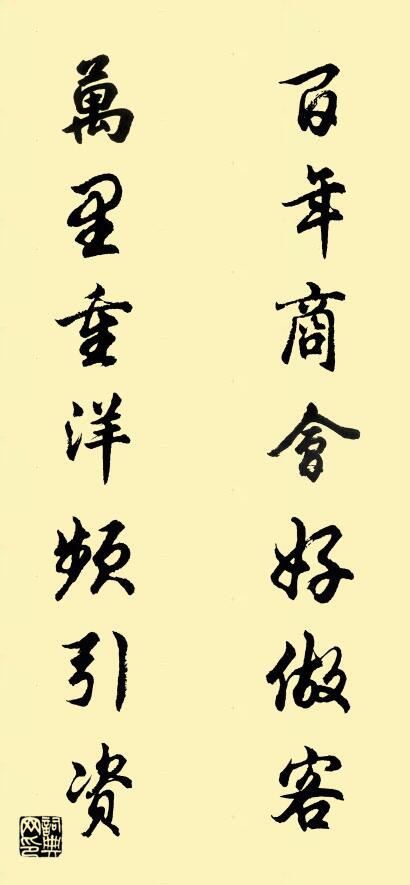 百年商會好做客
萬里重洋頻引资
詞典网印